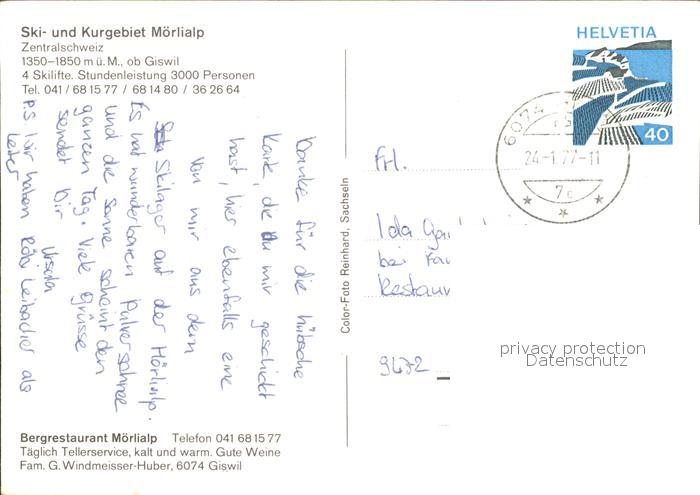 Ski- und Kurgebiet Mörlialp
Zentralschweiz
1350–1850 m ü. M., ob Giswil
4 Skilifte. Stundenleistung 3000 Personen
Tel. 041 / 68 15 77 / 68 14 80 / 36 26 64
Danke für die hübsche
Karte, die Du mir geschickt
hast, hier ebenfalls eine
von mir aus dem
Skilager auf der Mörlialp.
Es hat wunderbaren Pulverschnee
und die Sonne scheint den
ganzen Tag. Viele Grüsse
sendet Dir
Ursula
P.S Wir haben Röbi Leibacher als
Leiter
Bergrestaurant Mörlialp Telefon 041 68 15 77
Täglich Tellerservice, kalt und warm. Gute Weine
Fam. G. Windmeisser-Huber, 6074 Giswil
Color-Foto Reinhard, Sachseln
HELVETIA
40
6074
24-1.77-11
7c
Frl.
Ida
bei
9472
privacy protection
Datenschutz